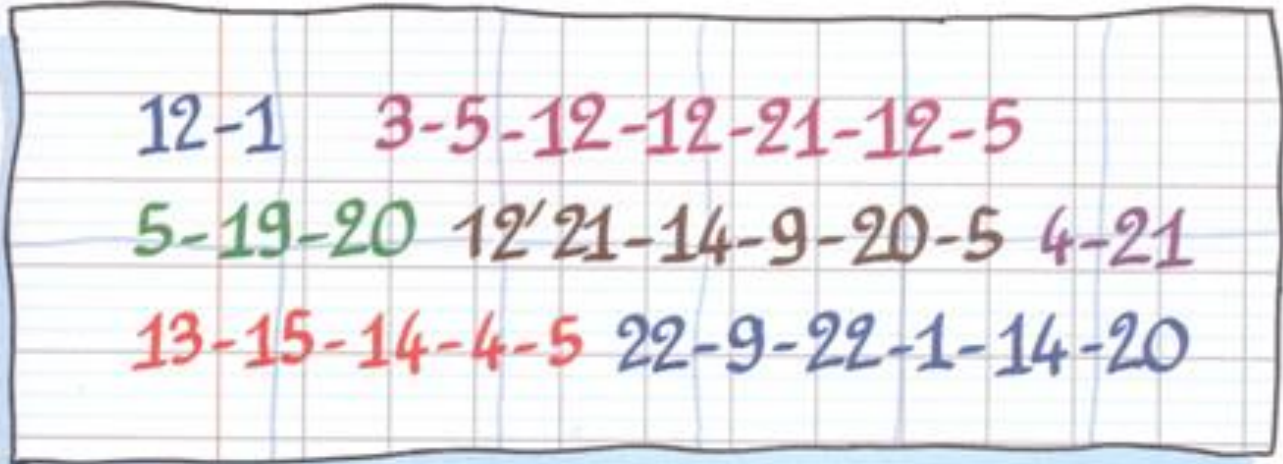 12-1 3-5-12-12-21-12-5
5-19-20 12'21-14-9-20-5 4-21
13-15-14-4-5 22-9-22-1-14-20